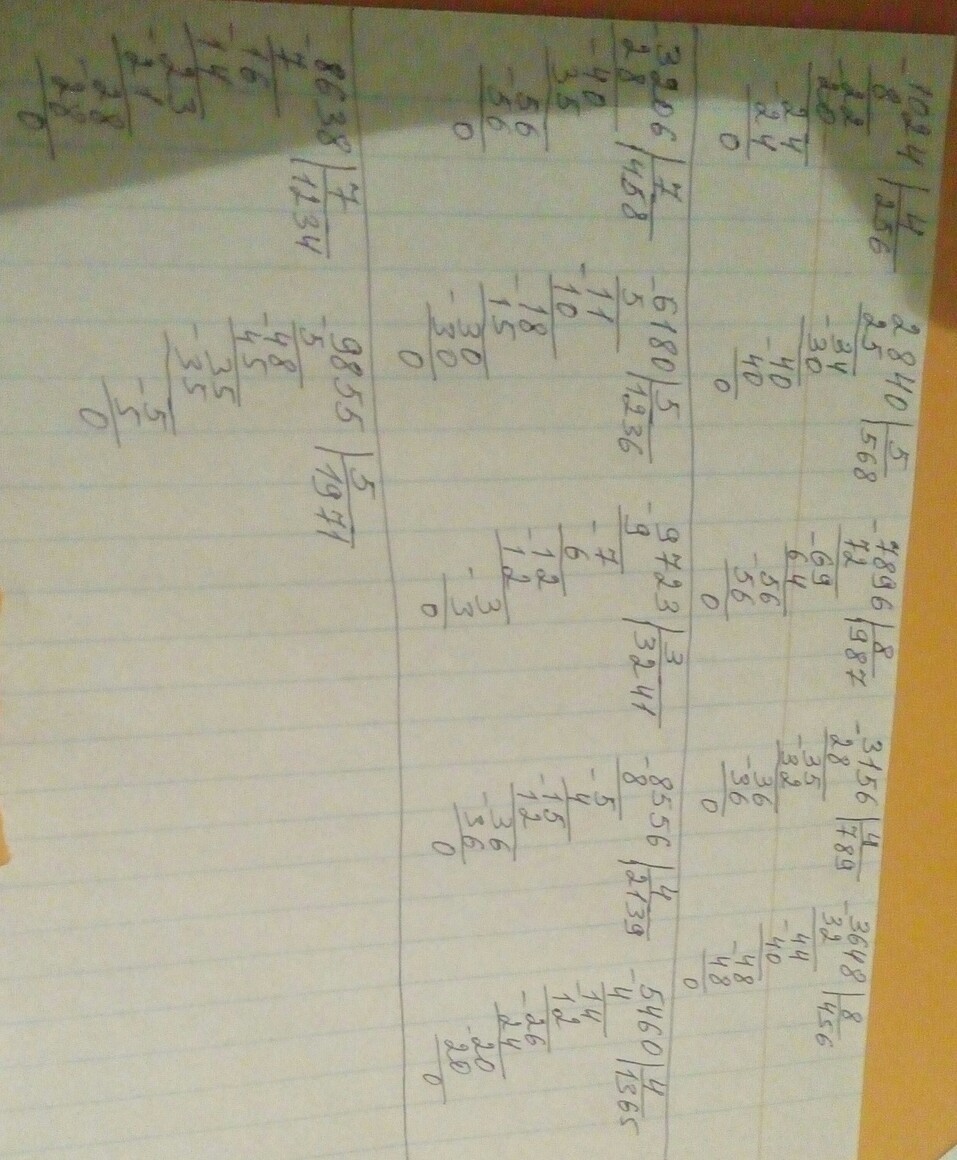 -1024|4
8 |256
-22
20
-24
24
0
2840|5
25 |568
-34
30
-40
40
0
-7896|8
72 |987
-69
64
-56
56
0
-3156|4
28 |789
-35
32
-36
36
0
-3648|8
32 |456
44
-40
-48
48
0
-3206|7
28 |458
-40
35
-56
56
0
-6180|5
5 |1236
-11
10
-18
15
-30
30
0
-9723|3
9 |3241
-7
6
-12
12
-3
3
0
-8556|4
8 |2139
-5
4
-15
12
-36
36
0
5460|4
-4 |1365
-14
12
-26
24
-20
20
0
-8638|7
7 |1234
-16
14
-23
21
-28
28
0
-9855|5
5 |1971
-48
45
-35
35
-5
5
0